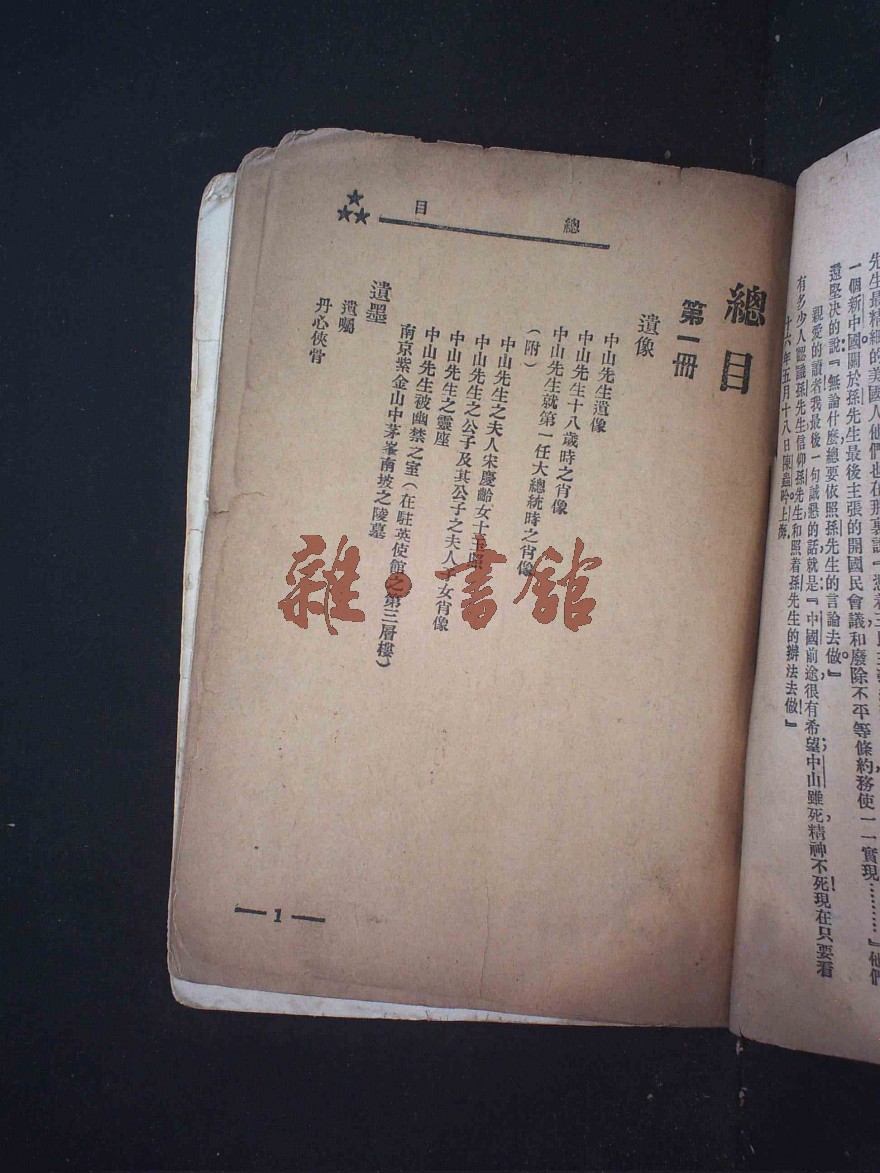 先生最精細的美國人他們也在那裏說
一個新中國關於孫先生最後主張的開國民會議和廢除不平等條約務使一一實現………』他們
還堅決的說『無論什麼總要依照孫先生的言論去做』
親愛的讀者我最後一句誠懇的話就是『中國前途很有希望中山雖死精神不死現在只要看
有多少人認識孫先生信仰孫先生和照着孫先生的辦法去做！』
十六年五月十八日陳 吟上海
總目
總目
第一冊
遺像
中山先生遺像
中山先生十八歲時之肖像
中山先生就第一任大總統時之肖像
（附）
中山先生之夫人宋慶齡女士玉照
中山先生之公子及其公子之夫人子女肖像
中山先生之靈座
中山先生被幽禁之室（在駐英使館之第三層樓）
南京紫金山中茅峯南坡之陵墓
遺墨
遺囑
丹心俠骨
1
雜·書館